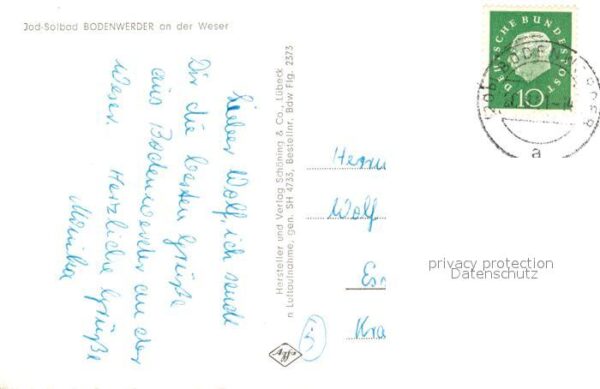 Jod-Solbad BODENWERDER an der Weser
Lieber Wolf, ich sende
Dir die besten Grüße
aus Bodenwerder an der
Weser. Herzliche Grüße
Monika
Hersteller und Verlag Schöning & Co., Lübeck
n Luftaufnahme, gen. SH 4733, Bestellnr. Bdw Flg. 2373
DEUTSCHE BUNDESPOST
10
a
Herrn
Wolf
Kra
5
privacy protection
Datenschutz